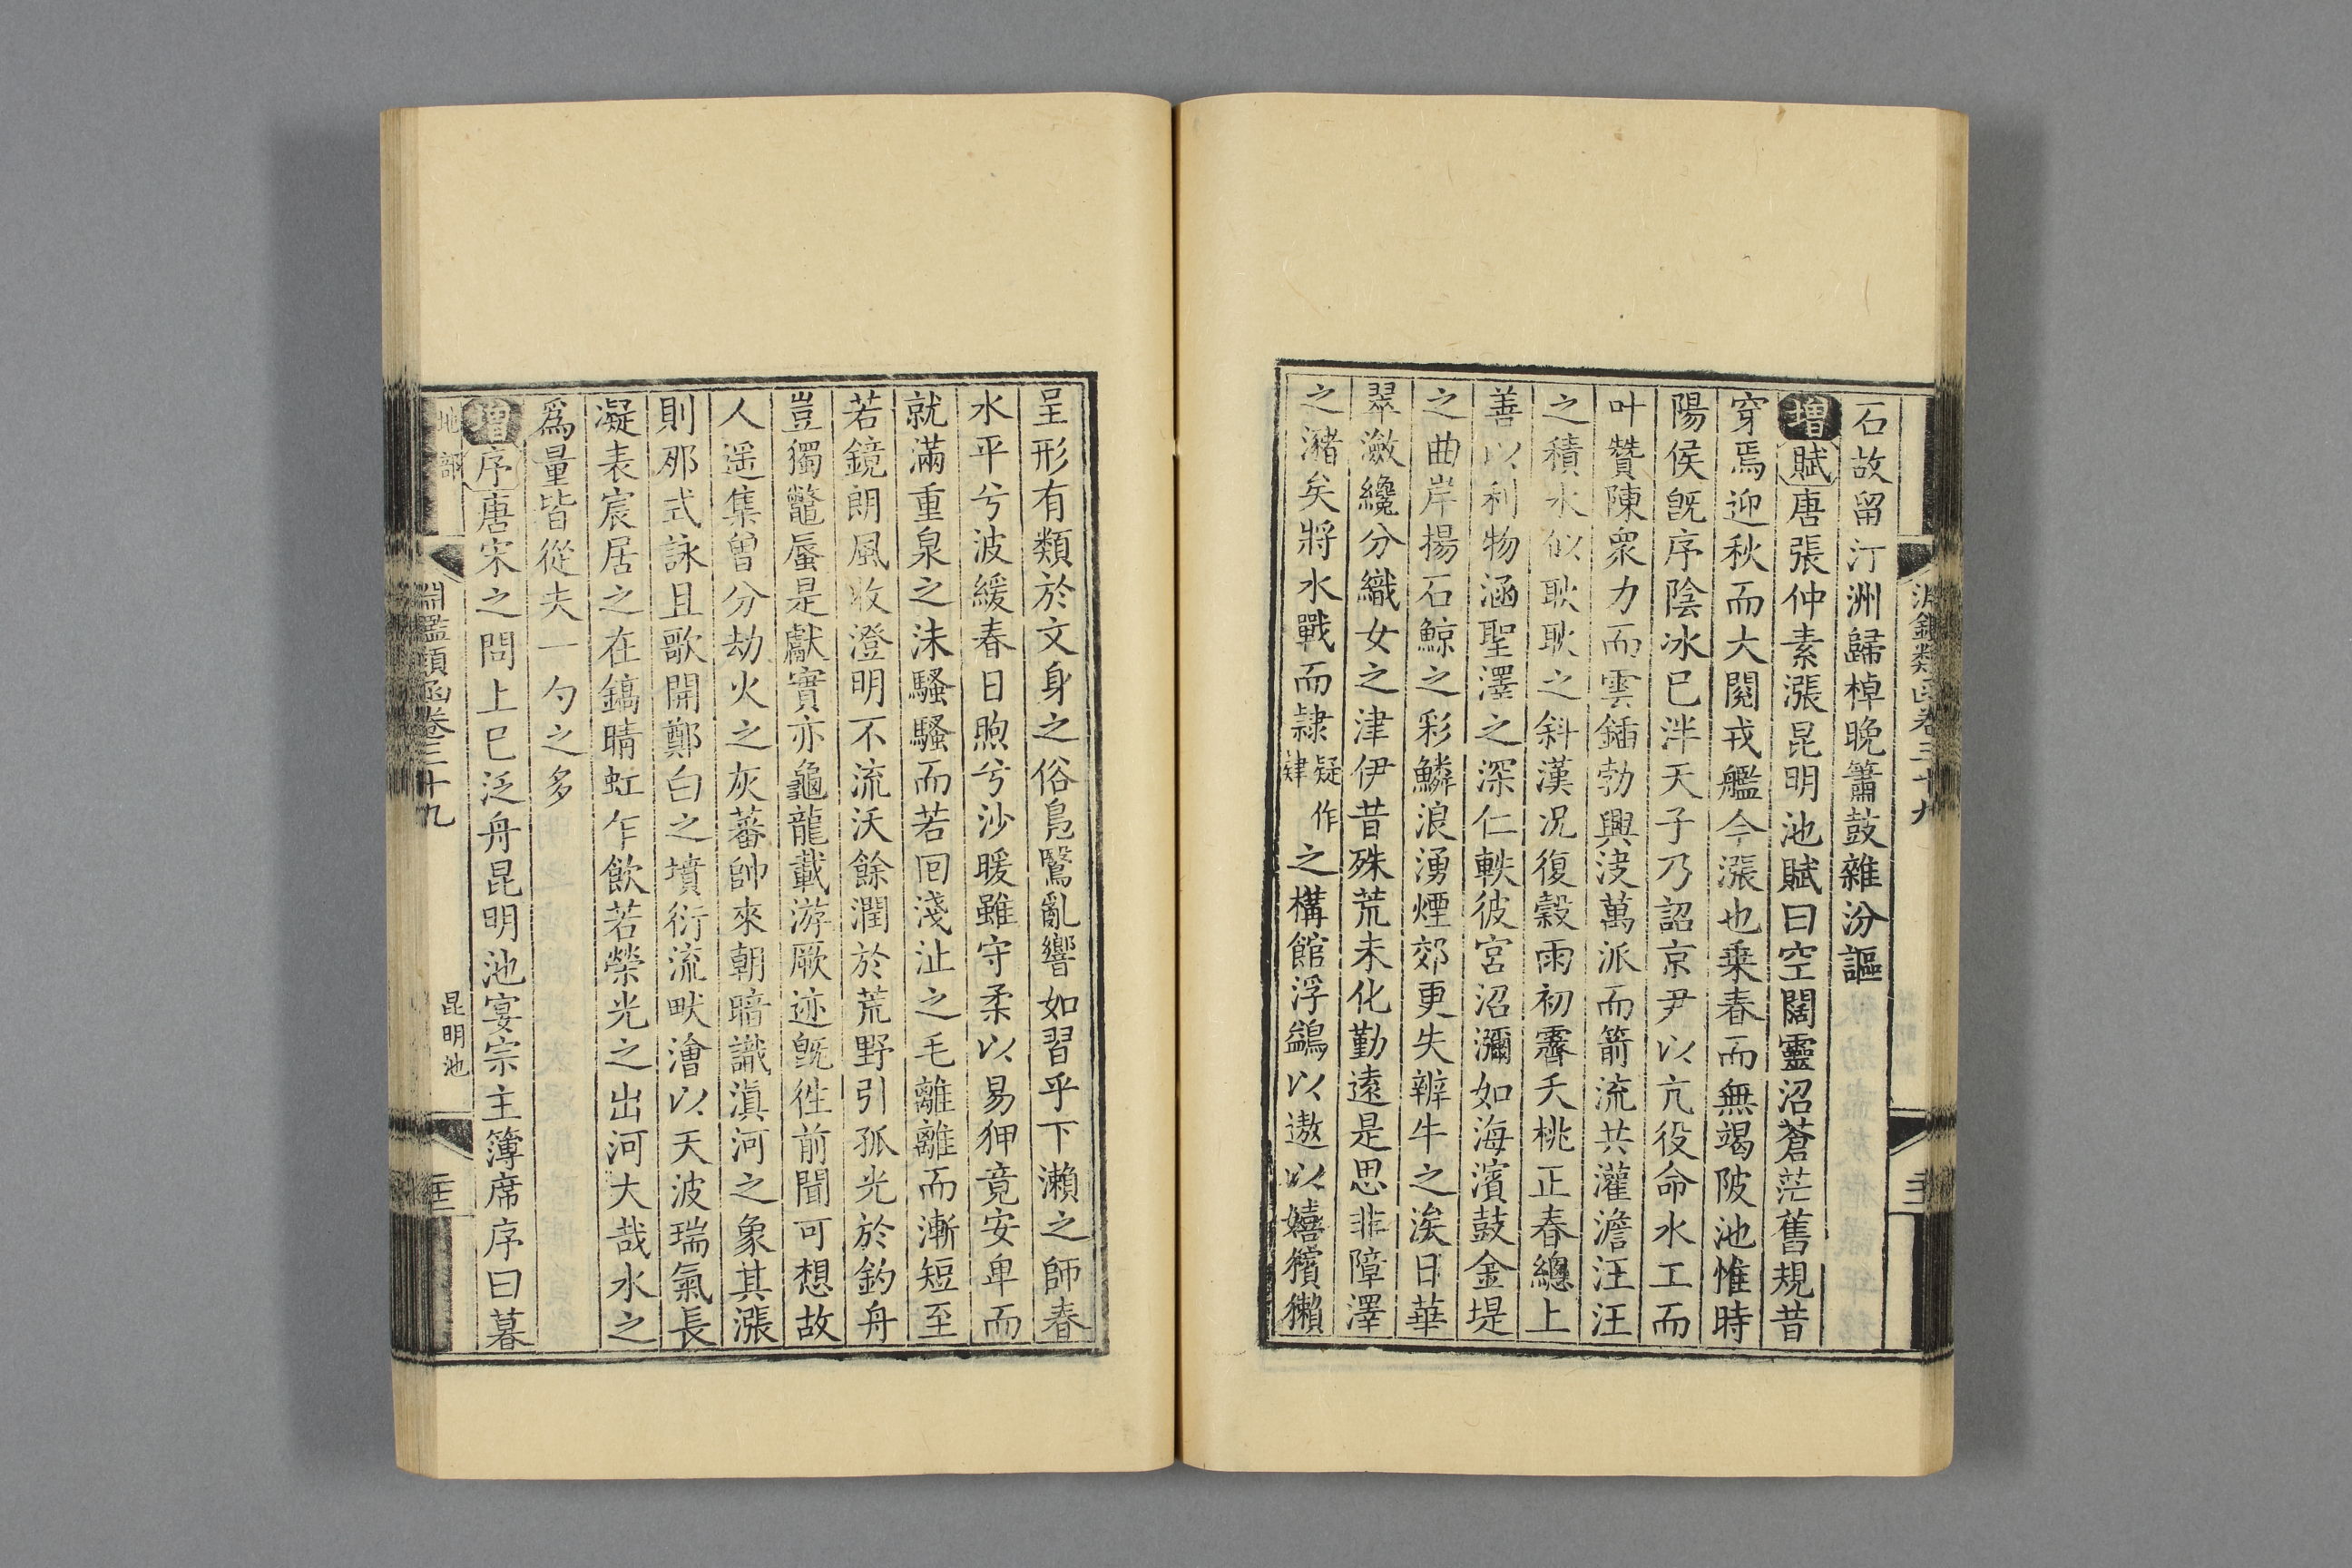 淵鑑類函卷三十九
石故留汀洲歸棹晚簫鼓雜汾謳
增賦唐張仲素漲昆明池賦曰空闊靈沼蒼茫舊規昔
穿焉迎秋而大閱戎艦今漲也乗春而無竭陂池惟時
陽侯旣序陰冰巳泮天子乃詔京尹以亢役命水工而
叶贊陳衆力而雲鍤勃興決萬派而箭流共灌澹汪汪
之積水似耿耿之斜漢况復穀雨初霽夭桃正春總上
善以利物涵聖澤之深仁軼彼宮沼瀰如海濱鼓金堤
之曲岸揚石鯨之彩鱗浪湧煙郊更失辨牛之涘日華
翠瀲纔分織女之津伊昔殊荒未化勤遠是思非障澤
之瀦矣將水戰而隷疑作肄之構館浮鷁以遨以嬉獱獺
呈形有類於文身之俗鳧鷖亂響如習乎下瀨之師春
水平兮波緩春日煦兮沙暖雖守柔以易狎竟安卑而
就滿重泉之沬騷騷而若囘淺沚之毛離離而漸短至
若鏡朗風收澄明不流沃餘潤於荒野引孤光於釣舟
豈獨鼈蜃是獻實亦龜龍載游厥迹旣徃前聞可想故
人遥集曾分劫火之灰蕃帥來朝暗識滇河之象其漲
則那式詠且歌開鄭白之墳衍流畎澮以天波瑞氣長
凝表宸居之在鎬晴虹乍飲若榮光之出河大哉水之
爲量皆從夫一勺之多
增序唐宋之問上巳泛舟昆明池宴宗主簿席序曰暮
地部
淵鑑類函卷三十九
昆明池